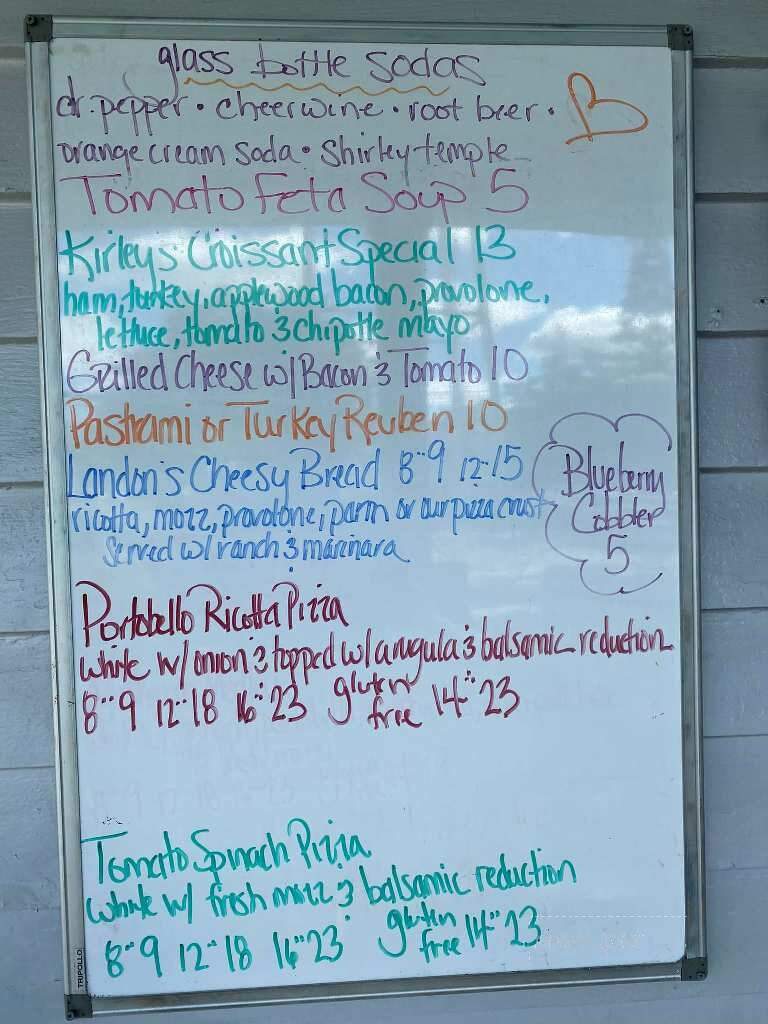 glass bottle sodas
dr. pepper • cheerwine • root beer •
orange cream soda • Shirley temple
Tomato Feta Soup 5
Kirley's Croissant Special 13
ham, turkey, applewood bacon, provolone,
lettuce, tomato & chipotle mayo
Grilled Cheese w/ Bacon & Tomato 10
Pastrami or Turkey Reuben 10
Landon's Cheesy Bread 8"-9 12"-15
ricotta, mozz, provolone, parm or our pizza crust
served w/ ranch & marinara
Blueberry
Cobbler
5
Portobello Ricotta Pizza
white w/ onion & topped w/ arugula & balsamic reduction
8"-9 12"-18 16"-23 gluten free 14"-23
Tomato Spinach Pizza
white w/ fresh mozz & balsamic reduction
8"-9 12"-18 16"-23 gluten free 14"-23
TRIPOLLO